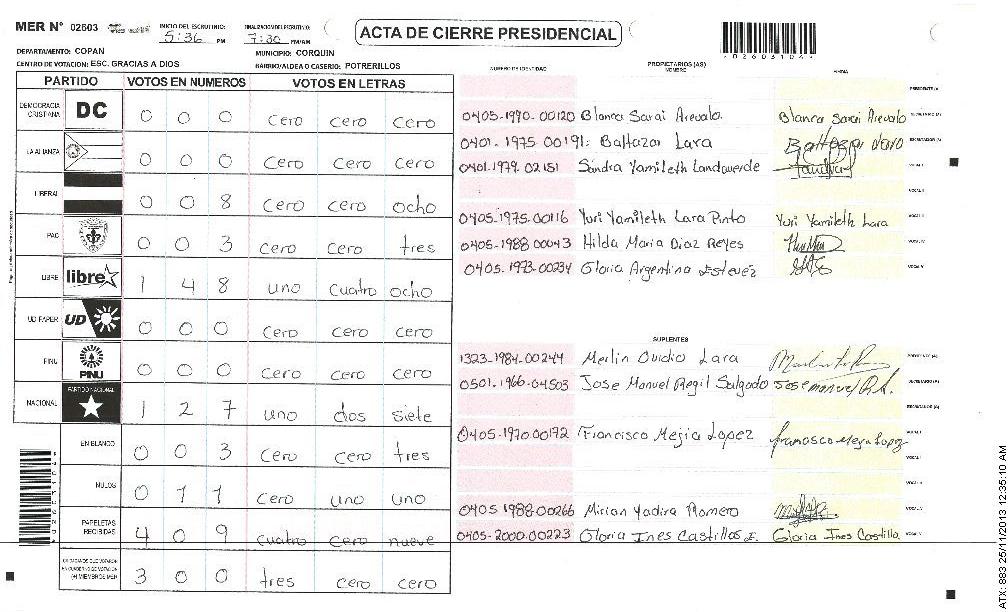 MER N° 02603 INICIO DEL ESCRUTINIO: 5:36 PM FINALIZACION DEL ESCRUTINIO: 7:30 PM/AM ACTA DE CIERRE PRESIDENCIAL
DEPARTAMENTO: COPAN MUNICIPIO: CORQUIN *02603104*
CENTRO DE VOTACION: ESC. GRACIAS A DIOS BARRIO/ALDEA O CASERIO: POTRERILLOS
PARTIDO VOTOS EN NUMEROS VOTOS EN LETRAS
DEMOCRACIA CRISTIANA DC 0 0 0 cero cero cero
LA ALIANZA 0 0 0 cero cero cero
LIBERAL 0 0 8 cero cero ocho
PAC 0 0 3 cero cero tres
LIBRE libre 1 4 8 uno cuatro ocho
UD FAPER UD 0 0 0 cero cero cero
PINU PINU 0 0 0 cero cero cero
NACIONAL PARTIDO NACIONAL 1 2 7 uno dos siete
EN BLANCO 0 0 3 cero cero tres
NULOS 0 1 1 cero uno uno
PAPELETAS RECIBIDAS 4 0 9 cuatro cero nueve
3 0 0 tres cero cero
NUMERO DE IDENTIDAD PROPIETARIOS (AS) NOMBRE FIRMA
PRESIDENTE (A)
0405-1990-00120 Blanca Sarai Arevalo. Blanca Sarai Arevalo SECRETARIO (A)
0401-1975-00191 Baltazar Lara Baltazar Lara ESCRUTADOR (A)
0401-1979-02151 Sandra Yamileth Landaverde VOCAL I
VOCAL II
0405-1975-00116 Yuri Yamileth Lara Pinto Yuri Yamileth Lara VOCAL III
0405-1988-00043 Hilda Maria Diaz Reyes VOCAL IV
0405-1973-00234 Gloria Argentina Estevez VOCAL V
SUPLENTES
1323-1984-00244 Merlin Ovidio Lara PRESIDENTE (A)
0501-1966-04503 Jose Manuel Regil Salgado Jose manuel R.S. SECRETARIO (A)
ESCRUTADOR (A)
0405-1970-00172 Francisco Mejia Lopez francisco Mejia Lopez VOCAL I
0405 1988-00266 Mirian Yadira Romero
0405-2000-00223 Gloria Ines Castillos E. Gloria Ines Castillo
ATX: 883 25/11/2013 12:35:10 AM